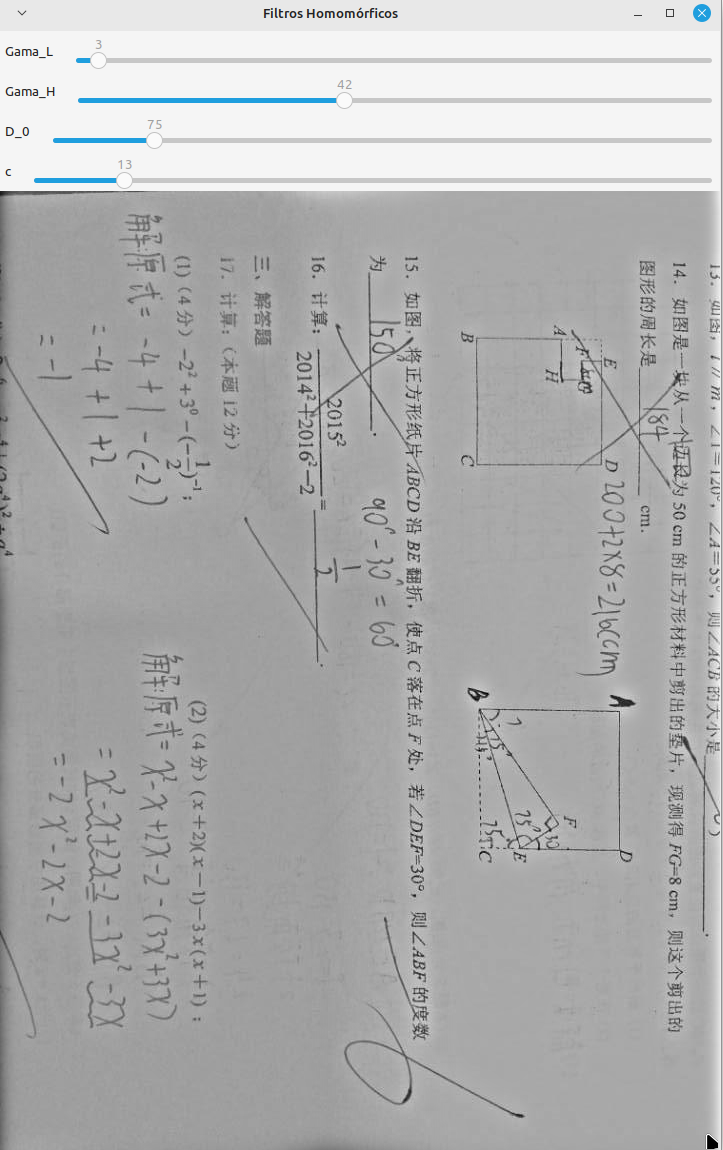 Filtros Homomórficos
Gama_L 3
Gama_H 42
D_0 75
c 13
13. 如图, l∥m, ∠1=120°, ∠A=55°, 则∠ACB 的大小是
14. 如图是一块从一个边长为 50 cm 的正方形材料中剪出的垫片, 现测得 FG=8 cm, 则这个剪出的
图形的周长是 184 cm.
200+2×8=216(cm)
A
E
F
H
B
C
D
A
B
C
D
E
F
75°
75°
30
15. 如图, 将正方形纸片 ABCD 沿 BE 翻折, 使点 C 落在点 F 处, 若∠DEF=30°, 则∠ABF 的度数
为 150 .
90°-30°=60°
16. 计算: 2015²/(2014²+2016²-2) = 1/2 .
三、解答题
17. 计算: (本题 12 分)
(1) (4 分) -2²+3⁰-(-1/2)⁻¹;
解:原式=-4+1-(-2)
=-4+1+2
=-1
(2) (4 分) (x+2)(x-1)-3x(x+1);
解:原式=x²-x+2x-2-(3x²+3x)
=x²-x+2x-2-3x²-3x
=-2x²-2x-2